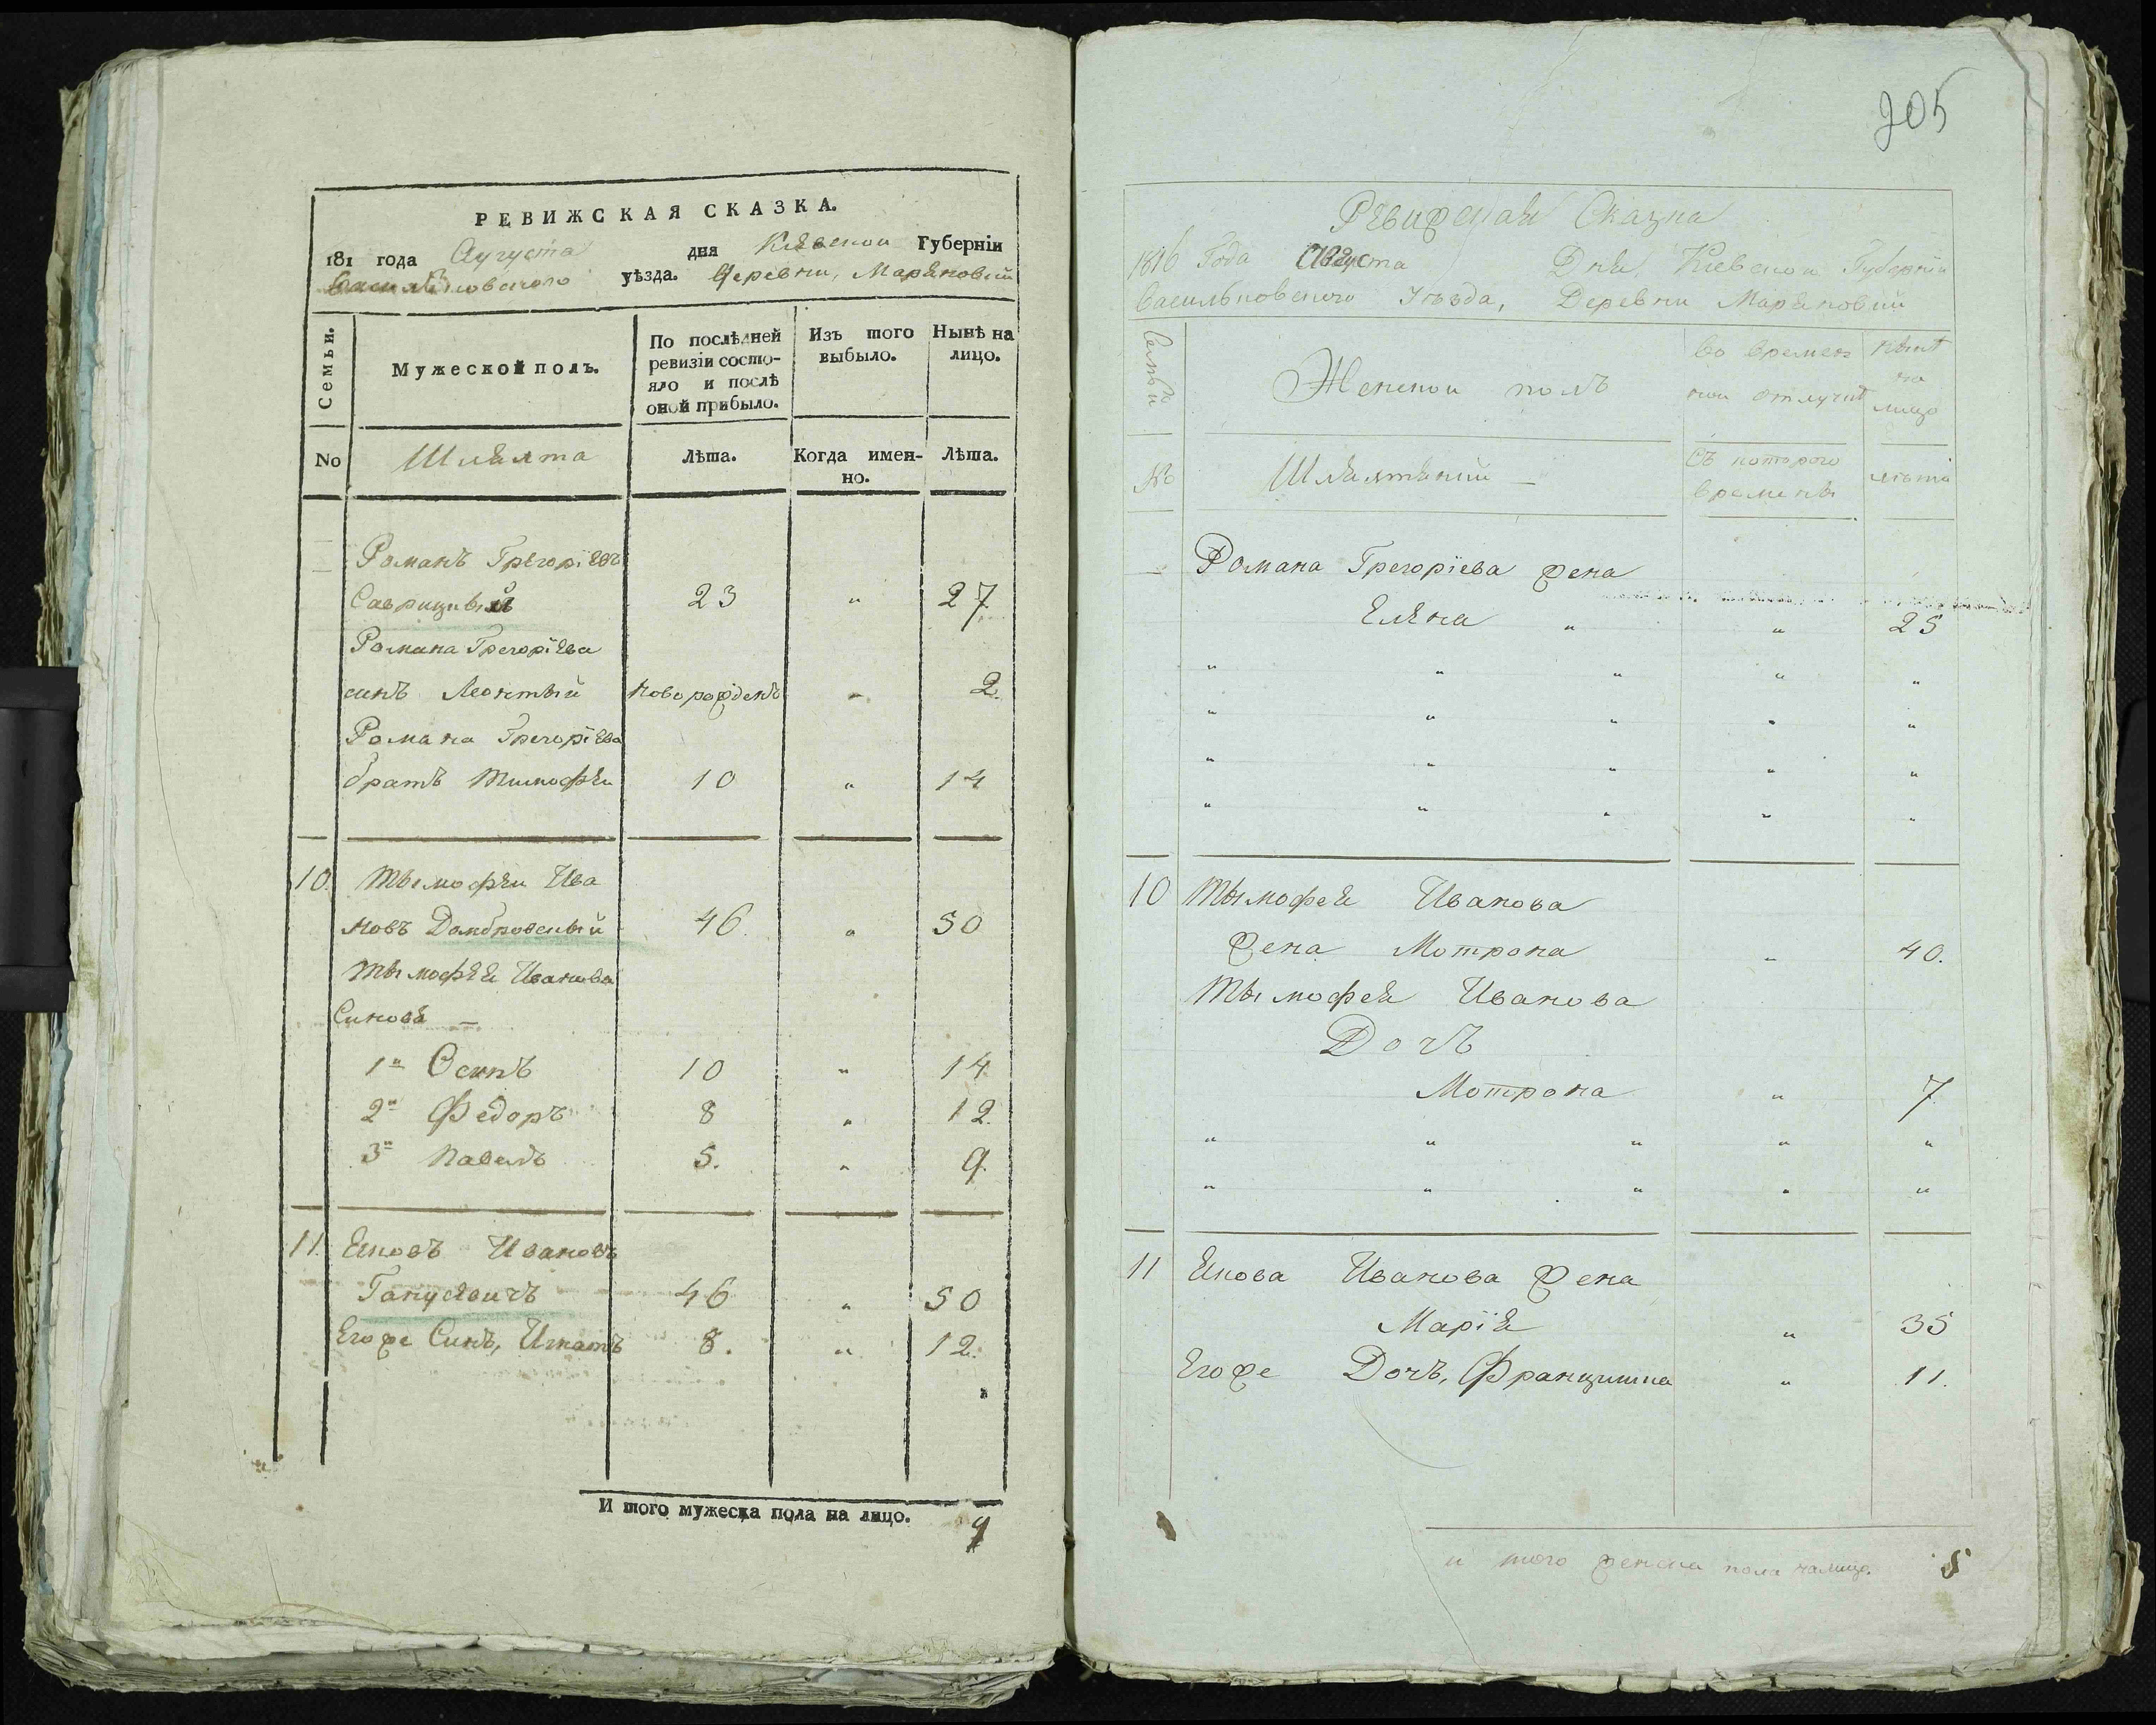 РЕВИЖСКАЯ СКАЗКА.
181 года Аугуста дня Киевской Губерніи
Васильковского уѣзда. Деревни, Маряновки
Семьи.
Мужеской полъ.
По послѣдней ревизіи состояло и послѣ оной прибыло.
Изъ того выбыло.
Нынѣ на лицо.
No
Шляхта
Лѣта.
Когда именно.
Лѣта.
Романъ Грегоріевъ
23 " 27
Романа Грегоріева
синъ Леонтый новорожденъ " 2.
Романа Грегоріева
братъ Тимофѣи 10 " 14
10. Тымофѣи Ива
новъ Домбровскый 46. " 50
Тымофѣя Иванова
Синовя —
1й Осипъ 10 " 14
2й Федоръ 8 " 12.
3й Павелъ 5. " 9.
11. Яковъ Ивановъ
Ганусевичъ 46 " 50
Егоже Синъ, Игнатъ 8. " 12.
И того мужеска пола на лицо. 9
205
Ревижская Сказка
1816 Года Августа Дня Киевской Губерніи
Васильковского Уѣзда, Деревни Маряновки
Семьи
Женской полъ
Во времен
ной отлучкѣ
Нынѣ
на
лицо
№
Шляхтянки —
Съ которого
времены
лѣта
Романа Грегоріева жена
Еляна " " 25
" " " " "
" " " " "
" " " " "
" " " " "
10 Тымофея Иванова
Жена Мотрона " 40.
Тымофея Иванова
Дочъ
Мотрона " 7
" " " " "
" " " " "
11 Якова Иванова Жена
Марія " 35
Егоже Дочъ, Францишка " 11.
и того женска пола налицо. 5